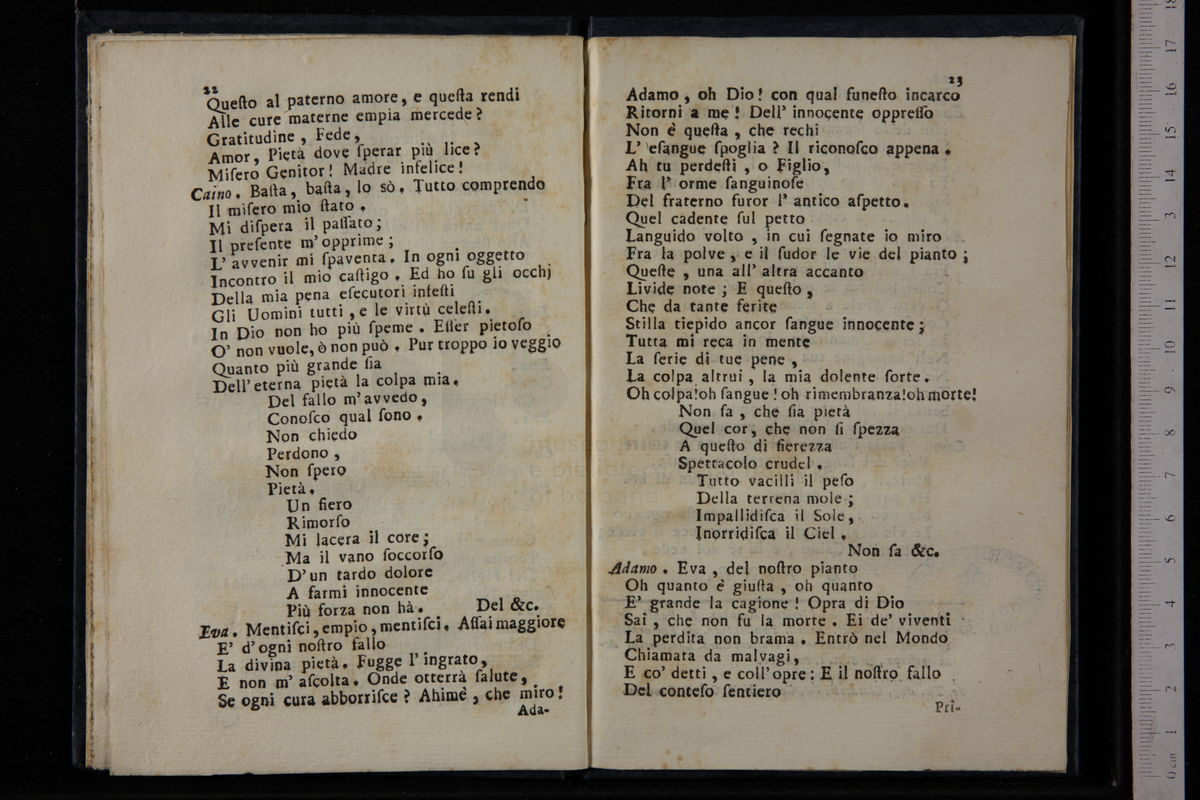 22
Queſto al paterno amore, e queſta rendi
Alle cure materne empia mercede?
Gratitudine, Fede,
Amor, Pietà dove ſperar più lice?
Miſero Genitor! Madre infelice!
Caino. Baſta, baſta, lo sò. Tutto comprendo
Il miſero mio ſtato.
Mi diſpera il paſſato;
Il preſente m'opprime;
L'avvenir mi ſpaventa. In ogni oggetto
Incontro il mio caſtigo. Ed ho ſu gli occhj
Della mia pena eſecutori infeſti
Gli Uomini tutti, e le virtù celeſti.
In Dio non ho più ſpeme. Eſſer pietoſo
O' non vuole, ò non può. Pur troppo io veggio
Quanto più grande ſia
Dell'eterna pietà la colpa mia.
Del fallo m'avvedo,
Conoſco qual ſono.
Non chiedo
Perdono,
Non ſpero
Pietà.
Un fiero
Rimorſo
Mi lacera il core;
Ma il vano ſoccorſo
D'un tardo dolore
A farmi innocente
Più forza non hà. Del &c.
Eva. Mentiſci, empio, mentiſci. Aſſai maggiore
E' d'ogni noſtro fallo
La divina pietà. Fugge l'ingrato,
E non m'aſcolta. Onde otterrà ſalute,
Se ogni cura abborriſce? Ahimè, che miro!
Ada-
23
Adamo, oh Dio! con qual funeſto incarco
Ritorni a me! Dell' innocente oppreſſo
Non è queſta, che rechi
L' eſangue ſpoglia? Il riconoſco appena.
Ah tu perdeſti, o Figlio,
Fra l' orme ſanguinoſe
Del fraterno furor l' antico aſpetto.
Quel cadente ſul petto
Languido volto, in cui ſegnate io miro
Fra la polve, e il ſudor le vie del pianto;
Queſte, una all' altra accanto
Livide note; E queſto,
Che da tante ferite
Stilla tiepido ancor ſangue innocente;
Tutta mi reca in mente
La ſerie di tue pene,
La colpa altrui, la mia dolente ſorte.
Oh colpa! oh ſangue! oh rimembranza! oh morte!
Non ſa, che ſia pietà
Quel cor, che non ſi ſpezza
A queſto di fierezza
Spettacolo crudel.
Tutto vacilli il peſo
Della terrena mole;
Impallidiſca il Sole,
Inorridiſca il Ciel.
Non ſa &c.
Adamo. Eva, del noſtro pianto
Oh quanto è giuſta, oh quanto
E' grande la cagione! Opra di Dio
Sai, che non fu la morte. Ei de' viventi
La perdita non brama. Entrò nel Mondo
Chiamata da malvagi,
E co' detti, e coll'opre: E il noſtro fallo
Del conteſo ſentiero
Pri-